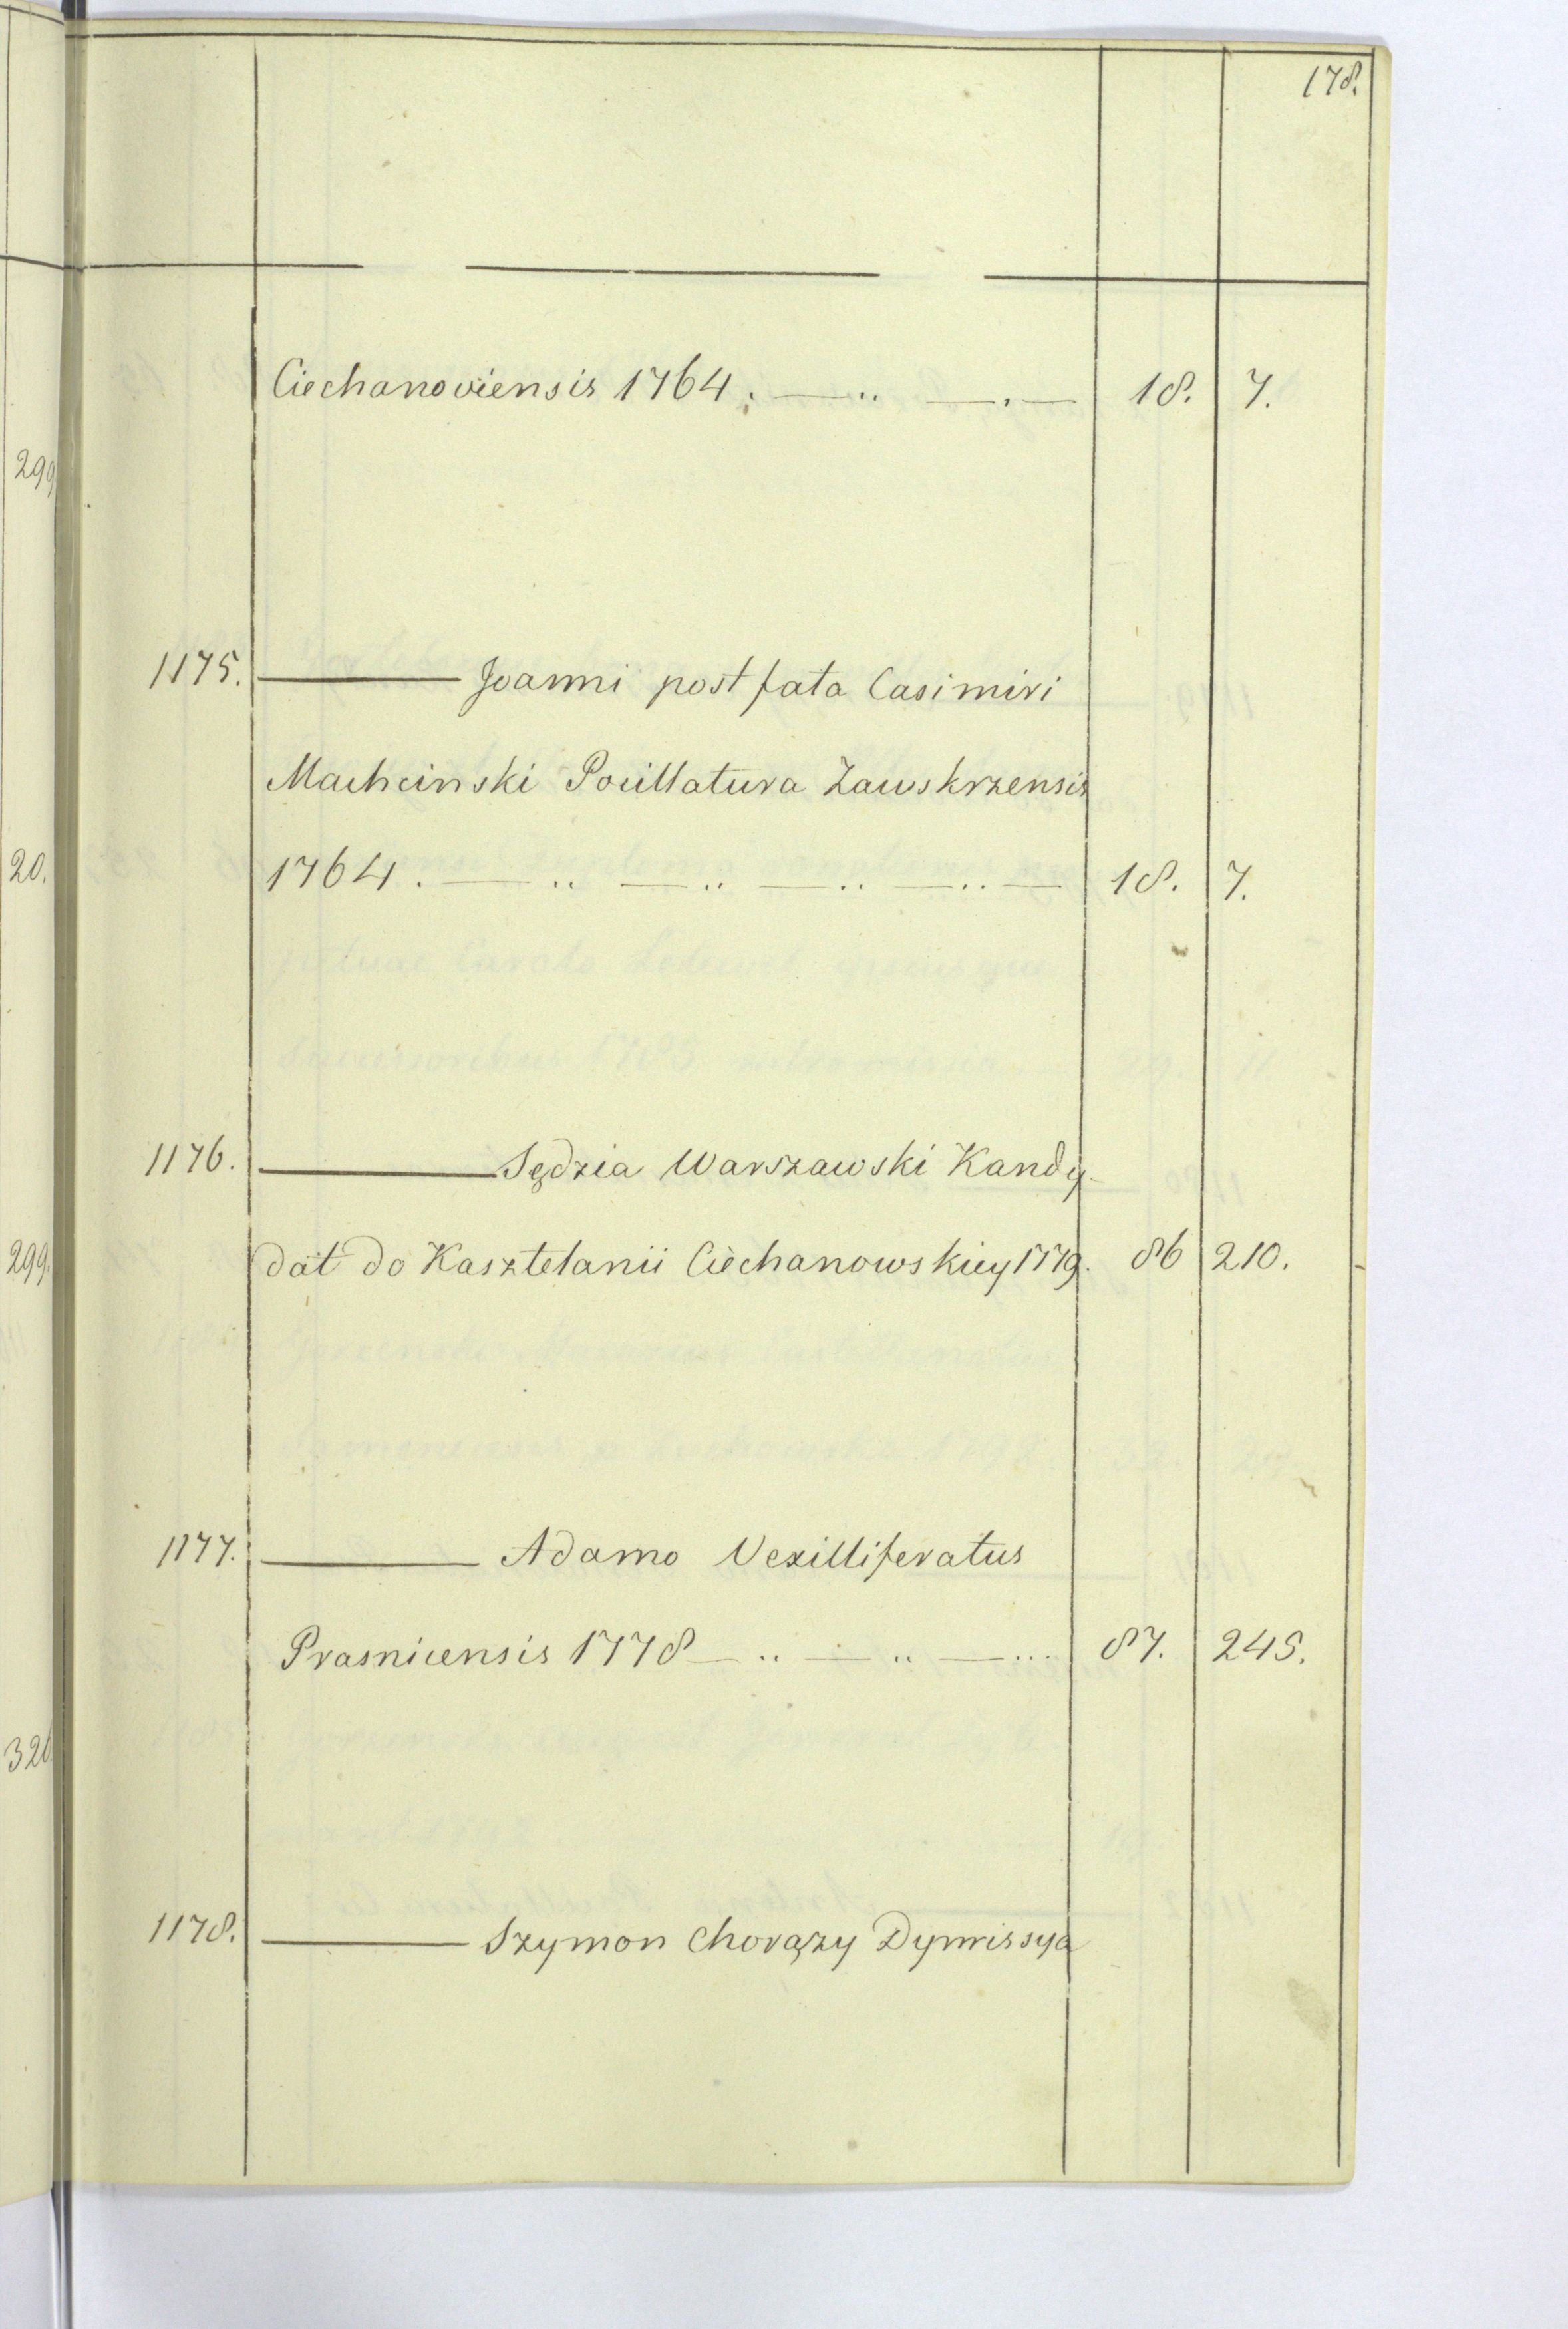 178.
Ciechanoviensis 1764. — „ — . — 18. 7.
1175. ——— Joanni post fata Casimiri
Machcinski Pocillatura Zawskrzensis
1764. — „ — „ — „ — „ — 18. 7.
1176. ——— Sędzia Warszawski Kandy-
dat do Kasztelanii Ciechanowskiey 1779. 86 210.
1177. ——— Adamo Vexilliferatus
Prasnicensis 1778 — „ — „ — ... 87. 245.
1178. ——— Szymon Chorąży Dymissya
299
20.
299.